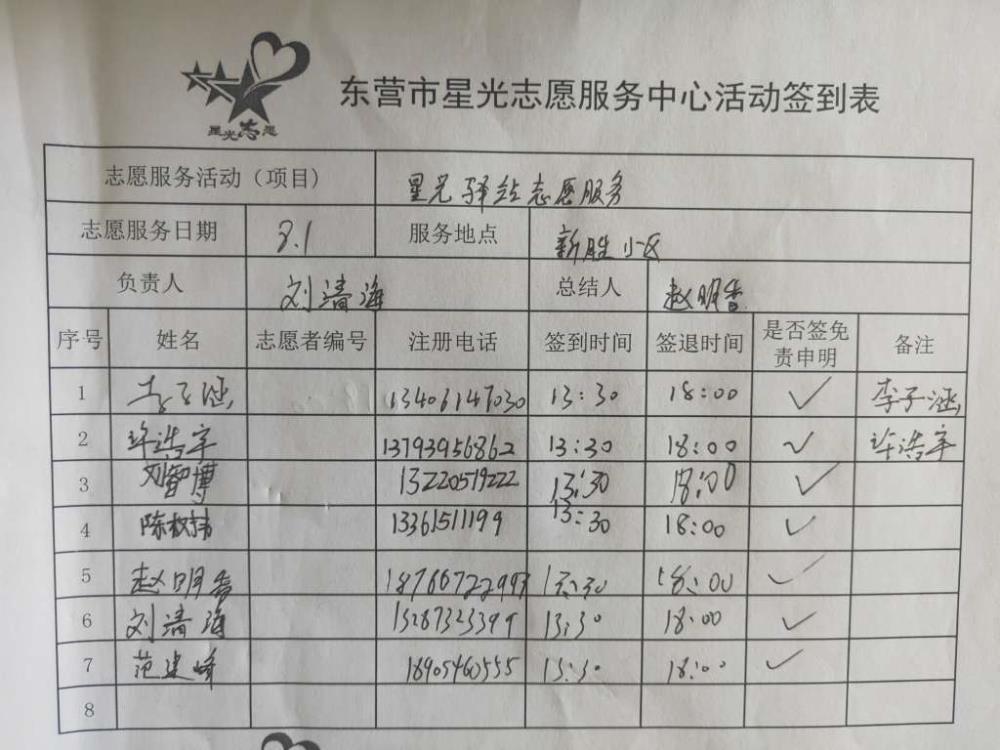 星光志愿
东营市星光志愿服务中心活动签到表
志愿服务活动（项目） 星光驿站志愿服务
志愿服务日期 8.1 服务地点 新胜小区
负责人 刘清海 总结人 赵明香
序号 姓名 志愿者编号 注册电话 签到时间 签退时间 是否签免责申明 备注
1 李子涵 13406147030 13:30 18:00 ✓ 李子涵
2 许浩宇 13793956862 13:30 18:00 ✓ 许浩宇
3 刘智博 13220519222 13:30 18:00 ✓
4 13361511199 13:30 18:00 ✓
5 赵明香 13:30 18:00 ✓
6 刘清海 15287323399 13:30 18:00 ✓
7 范建峰 18905460555 13:30 18:00 ✓
8